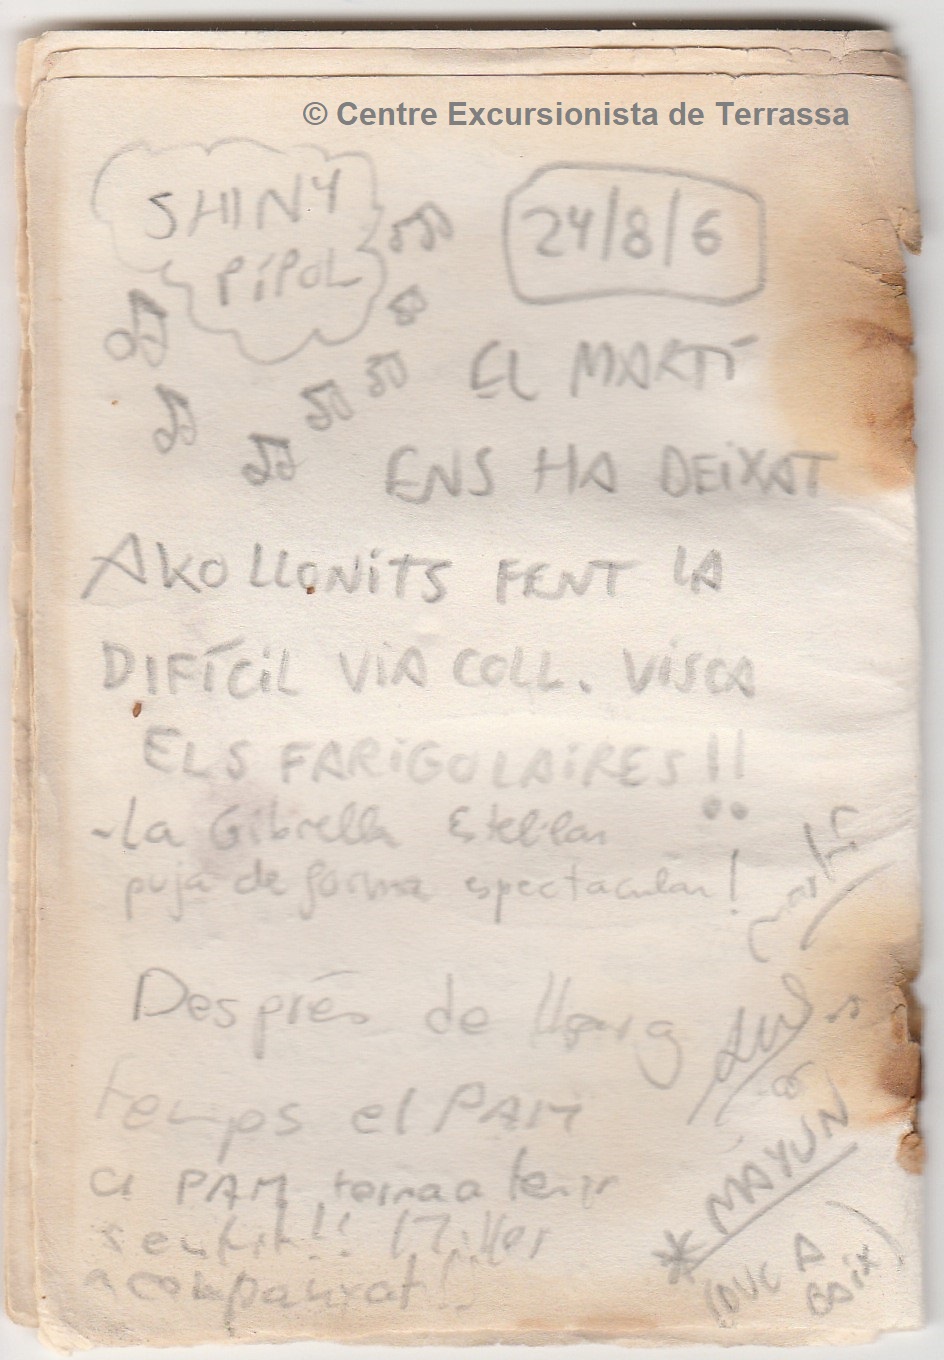 © Centre Excursionista de Terrassa
SHINY
PÍPOL
24/8/6
EL MARTÍ
ENS HA DEIXAT
AKOLLONITS FENT LA
DIFÍCIL VIA COLL. VISCA
ELS FARIGOLAIRES!!
-La Gibrella Estel·lar
puja de forma espectacular!
Martí
Després de llarg
temps el PAM
el PAM torna a tenir
sentit!! Millor
acompanyat!!
* MAYUN
(DUC A
BAIX)